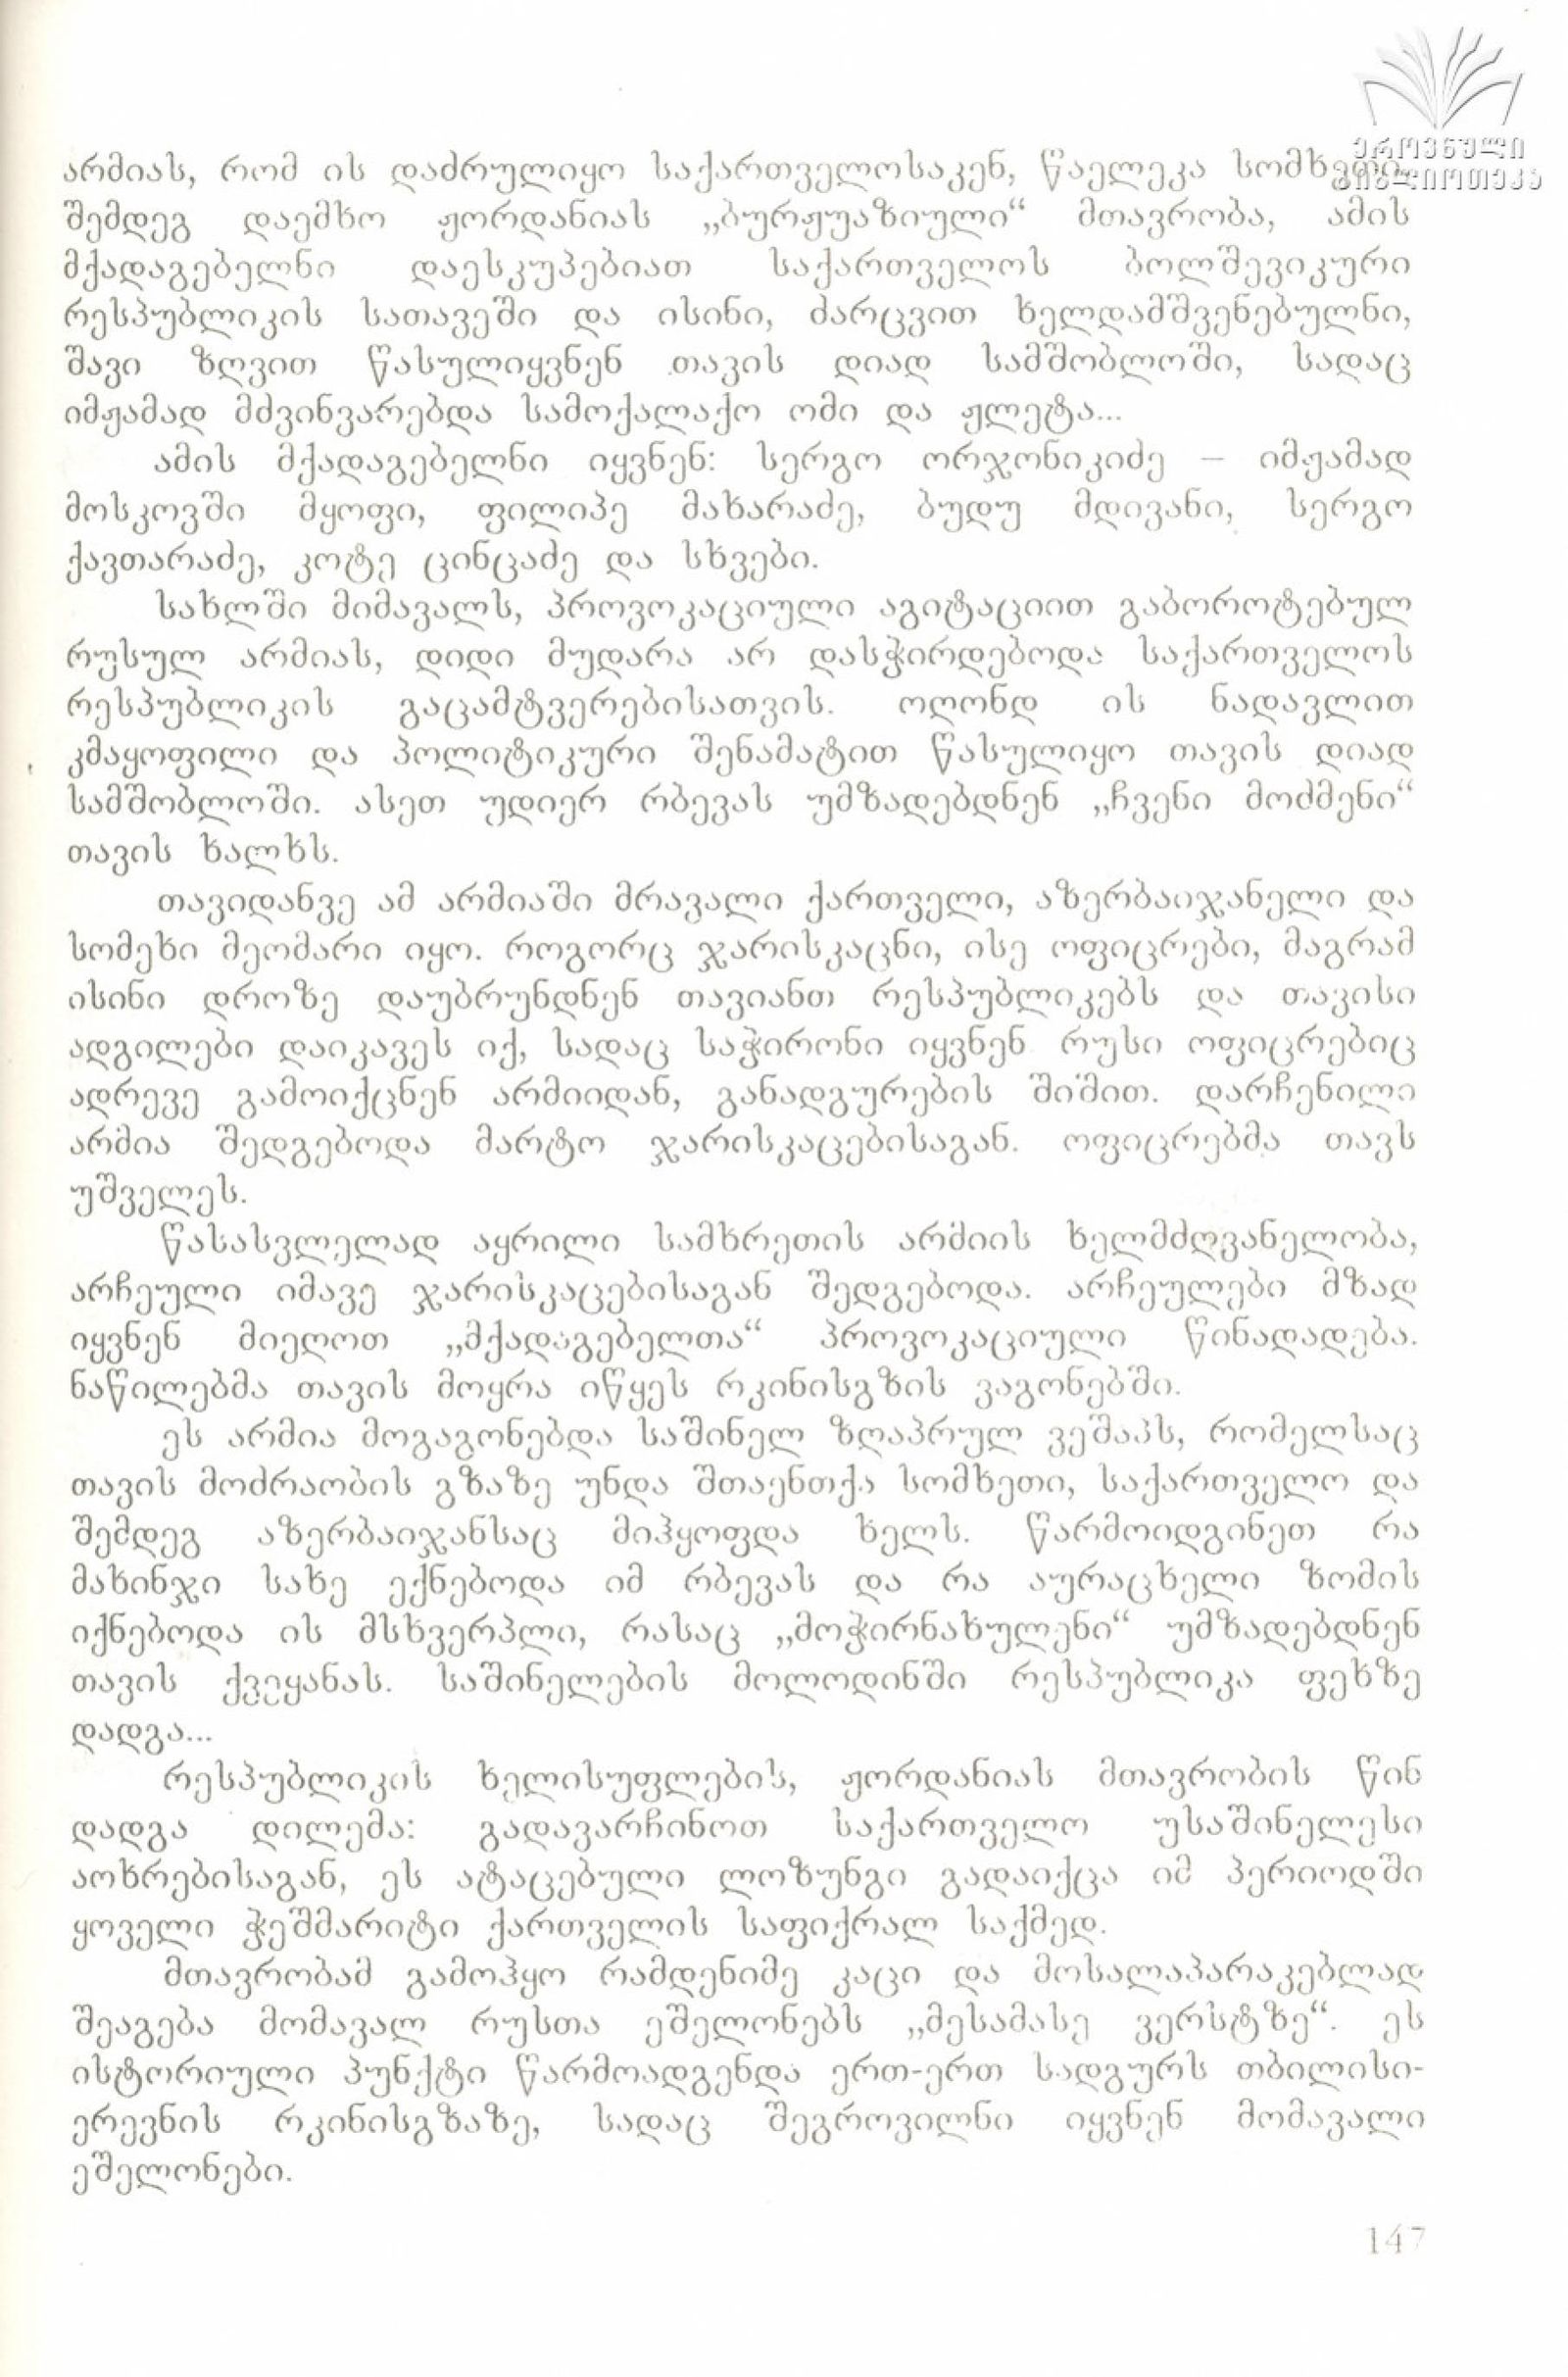 ეროვნული
ბიბლიოთეკა
არმიას, რომ ის დაძრულიყო საქართველოსაკენ, წაელეკა სომხეთი,
შემდეგ დაემხო ჟორდანიას „ბურჟუაზიული“ მთავრობა, ამის
მქადაგებელნი დაესკუპებიათ საქართველოს ბოლშევიკური
რესპუბლიკის სათავეში და ისინი, ძარცვით ხელდამშვენებულნი,
შავი ზღვით წასულიყვნენ თავის დიად სამშობლოში, სადაც
იმჟამად მძვინვარებდა სამოქალაქო ომი და ჟლეტა...
ამის მქადაგებელნი იყვნენ: სერგო ორჯონიკიძე – იმჟამად
მოსკოვში მყოფი, ფილიპე მახარაძე, ბუდუ მდივანი, სერგო
ქავთარაძე, კოტე ცინცაძე და სხვები.
სახლში მიმავალს, პროვოკაციული აგიტაციით გაბოროტებულ
რუსულ არმიას, დიდი მუდარა არ დასჭირდებოდა საქართველოს
რესპუბლიკის გაცამტვერებისათვის. ოღონდ ის ნადავლით
კმაყოფილი და პოლიტიკური შენამატით წასულიყო თავის დიად
სამშობლოში. ასეთ უდიერ რბევას უმზადებდნენ „ჩვენი მოძმენი“
თავის ხალხს.
თავიდანვე ამ არმიაში მრავალი ქართველი, აზერბაიჯანელი და
სომეხი მეომარი იყო. როგორც ჯარისკაცნი, ისე ოფიცრები, მაგრამ
ისინი დროზე დაუბრუნდნენ თავიანთ რესპუბლიკებს და თავისი
ადგილები დაიკავეს იქ, სადაც საჭირონი იყვნენ. რუსი ოფიცრებიც
ადრევე გამოიქცნენ არმიიდან, განადგურების შიშით. დარჩენილი
არმია შედგებოდა მარტო ჯარისკაცებისაგან. ოფიცრებმა თავს
უშველეს.
წასასვლელად აყრილი სამხრეთის არმიის ხელმძღვანელობა,
არჩეული იმავე ჯარისკაცებისაგან შედგებოდა. არჩეულები მზად
იყვნენ მიეღოთ „მქადაგებელთა“ პროვოკაციული წინადადება.
ნაწილებმა თავის მოყრა იწყეს რკინისგზის ვაგონებში.
ეს არმია მოგაგონებდა საშინელ ზღაპრულ ვეშაპს, რომელსაც
თავის მოძრაობის გზაზე უნდა შთაენთქა სომხეთი, საქართველო და
შემდეგ აზერბაიჯანსაც მიჰყოფდა ხელს. წარმოიდგინეთ რა
მახინჯი სახე ექნებოდა იმ რბევას და რა აურაცხელი ზომის
იქნებოდა ის მსხვერპლი, რასაც „მოჭირნახულენი“ უმზადებდნენ
თავის ქვეყანას. საშინელების მოლოდინში რესპუბლიკა ფეხზე
დადგა...
რესპუბლიკის ხელისუფლების, ჟორდანიას მთავრობის წინ
დადგა დილემა: გადავარჩინოთ საქართველო უსაშინელესი
აოხრებისაგან, ეს ატაცებული ლოზუნგი გადაიქცა იმ პერიოდში
ყოველი ჭეშმარიტი ქართველის საფიქრალ საქმედ.
მთავრობამ გამოჰყო რამდენიმე კაცი და მოსალაპარაკებლად
შეაგება მომავალ რუსთა ეშელონებს „მესამასე ვერსტზე“. ეს
ისტორიული პუნქტი წარმოადგენდა ერთ-ერთ სადგურს თბილისი-
ერევნის რკინისგზაზე, სადაც შეგროვილნი იყვნენ მომავალი
ეშელონები.
147